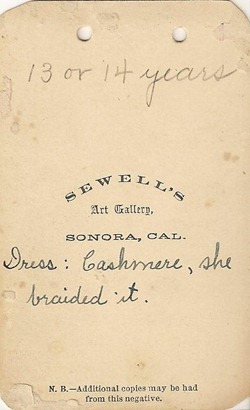 13 or 14 years
SEWELL'S
Art Gallery,
SONORA, CAL.
Dress: Cashmere, she
braided it.
N. B.—Additional copies may be had
from this negative.